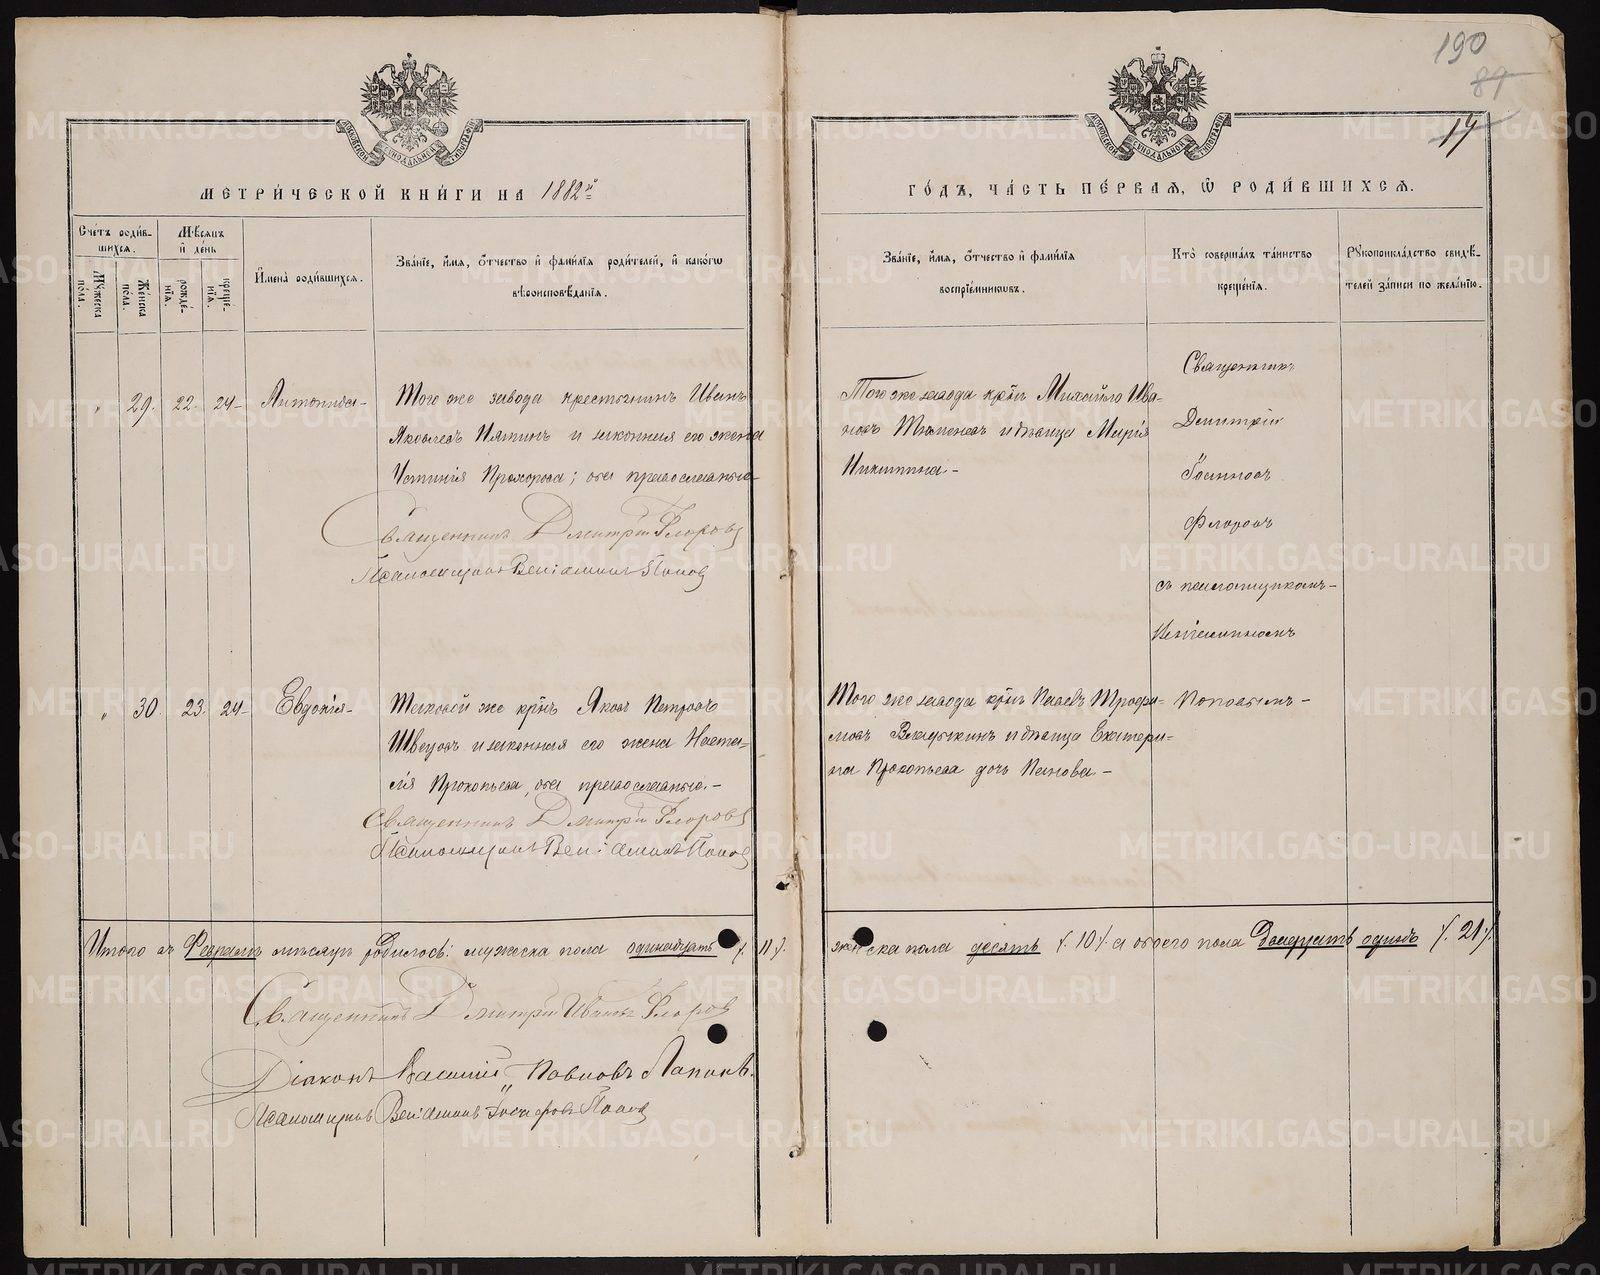 190
87
17
МЕТРИ́ЧЕСКОЙ КНИ́ГИ НА 1882й
ГО́ДЪ, ЧА́СТЬ ПЕ́РВАЯ, Ѡ РОДИ́ВШИХСЯ.
Сче́тъ роди́в-
шихся.
Му́жеска по́ла.
Же́нска по́ла.
Мѣ́сяцъ
и де́нь
рожде́-
нія.
креще́-
нія.
Имена̀ роди́вшихся.
Зва́ніе, и́мя, о́тчество и фами́лія роди́телей, и како́гѡ
вѣроисповѣ́данія.
Зва́ніе, и́мя, о́тчество и фами́лія
воспріе́мниковъ.
Кто̀ соверша́лъ та́инство
креще́нія.
Рꙋкоприкла́дство свидѣ́-
телей за́писи по жела́нію.
" 29. 22. 24-
Того же завода крестьянинъ Иванъ
Яковлевъ Пятинъ и законная его жена
Устинія Прохорова; оба православные-
Священникъ Дмитрій Флоровъ
Псаломщикъ Веніаминъ Поповъ
Того же завода крнъ Михайло Ива-
новъ и дѣвица Марія
Никитина.-
Священникъ
Димитрій
Іоанновъ
Флоровъ
съ псаломщикомъ-
Веніаминомъ
Поповымъ-
" 30. 23. 24- Евдокія-
Таковой же крнъ Яковъ Петровъ
Швецовъ и законная его жена Ната-
лія Прокопьева, оба православные.-
Священникъ Дмитрій Флоровъ
Псаломщикъ Веніаминъ Поповъ
Того же завода крнъ Трофи-
мовъ и дѣвица Екатери-
на Прокопьева дочь Панова-
Итого въ Февралѣ мѣсяцѣ родилось: мужеска пола одинадцать /. 11 /.
женска пола десять /. 10 /. а обоего пола двадцать одинъ /. 21 /.
Священникъ Дмитрій Ивановъ Флоровъ
Діаконъ Василій Павловъ
Псаломщикъ Веніаминъ Поповъ
METRIKI.GASO-URAL.RU